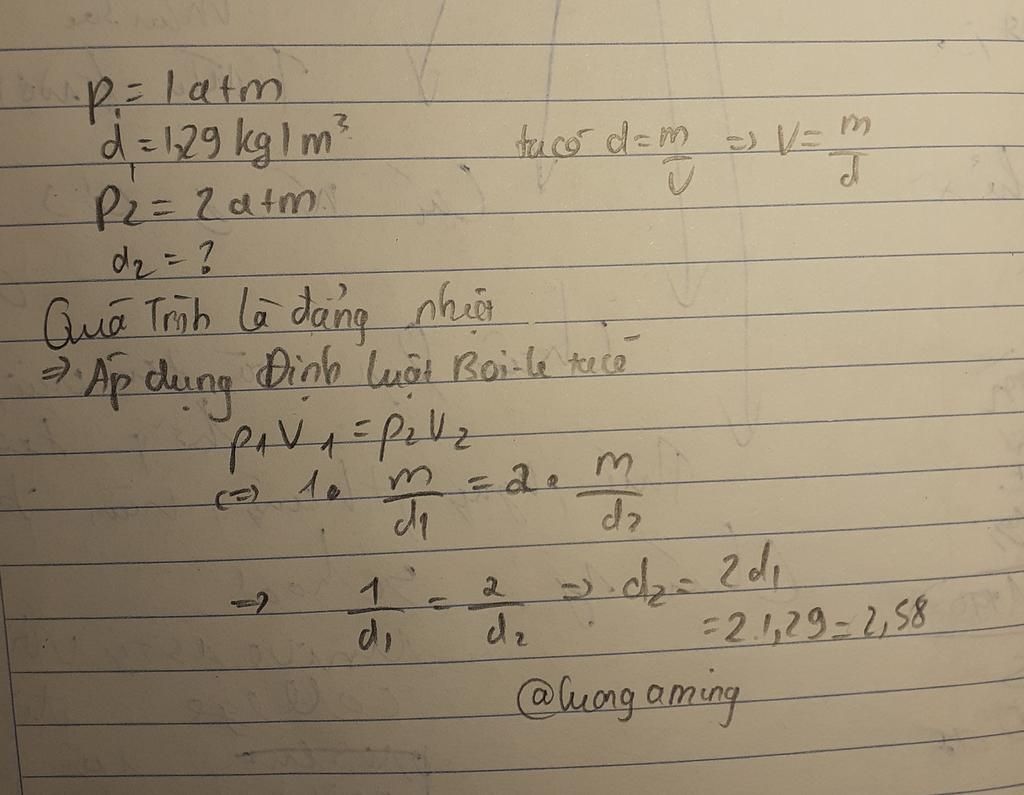 P₁ = 1atm
d₁ = 1,29 kg/m³
ta có d = m/V => V = m/d
P₂ = 2atm
d₂ = ?
Quá Trình là đẳng nhiệt
=> Áp dụng Định luật Bôi-lơ ta có
p₁V₁ = p₂V₂
<=> 1. m/d₁ = 2. m/d₂
=> 1/d₁ = 2/d₂ => d₂ = 2d₁
= 2.1,29 = 2,58
@luongaming